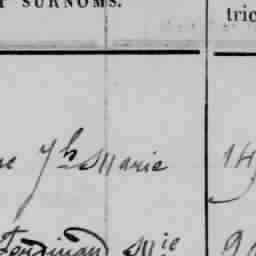 T SURNOMS.
tric
ne Jh Marie 149
Ferdinand Mie 90